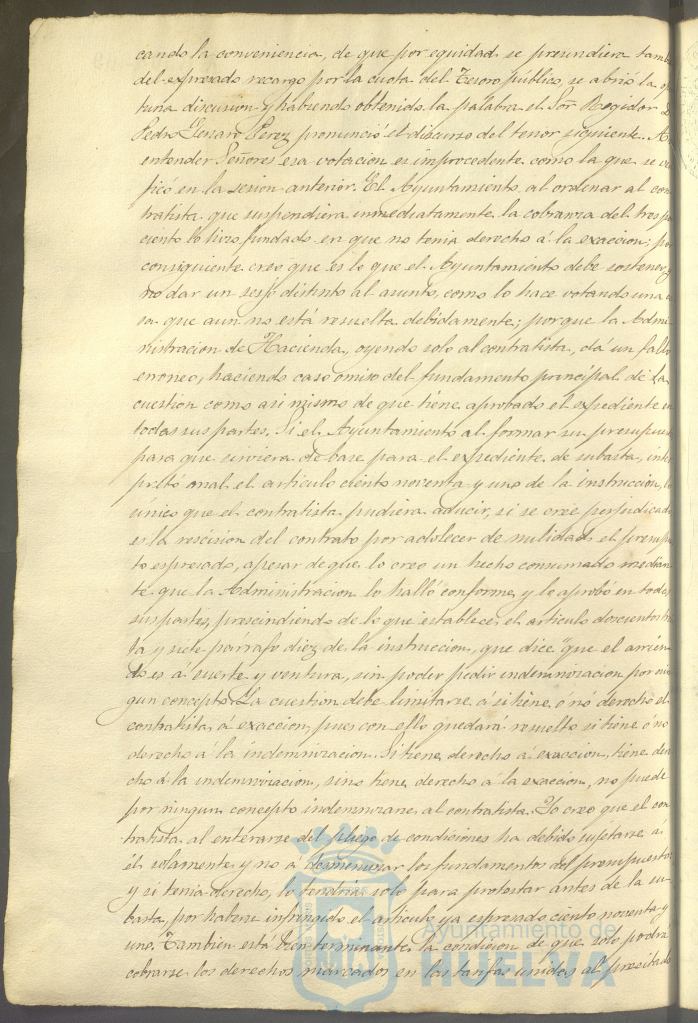 cando la conveniencia, de que por equidad se prescindiera tamb
del expresado recargo por la cuota del Tesoro público, se abrió la
tuna discusion y habiendo obtenido la palabra el Señ Regidor D
Pedro Genaro Perez pronunció el discurso del tenor siguiente. A
entender Señores esa votacion es improcedente como la que se
ficó en la sesion anterior. El Ayuntamiento al ordenar al con
tratista que suspendiera inmediatamente la cobranza del tres po
ciento lo hizo fundado en que no tenia derecho á la exaccion; por
consiguiente creo que es lo que el Ayuntamiento debe sostener y
no dar un sesgo distinto al asunto, como lo hace votando una
sa que aun no está resuelta debidamente; porque la Admi
nistracion de Hacienda, oyendo solo al contratista, dá un fallo
erroneo, haciendo caso omiso del fundamento principal de la
cuestion como asi mismo de que tiene aprobado el expediente en
todas sus partes. Si el Ayuntamiento al formar su presupues
para que sirviera de base para el expediente de subasta, inter
pretó mal el articulo ciento noventa y uno de la instruccion, lo
único que el contratista pudiera aducir, si se cree perjudicado
es la rescision del contrato por adolecer de nulidad el presupues
to espresado, apesar de que lo creo un hecho consumado median
te que la Administracion lo halló conforme y le aprobó en todas
sus partes, prescindiendo de lo que establece el articulo doscientos tre
ta y siete párrafo diez de la instruccion, que dice "que el arrien
do es á suerte y ventura, sin poder pedir indemnizacion por nin
gun concepto. La cuestion debe limitarse á si tiene ó nó derecho el
contratista á exaccion, pues con ello quedará resuelto si tiene ó no
derecho á la indemnizacion. Si tiene derecho á exaccion, tiene dere
cho á la indemnizacion, sino tiene derecho á la exaccion, no puede
por ningun concepto indemnizarse al contratista. Yo creo que el con
tratista al enterarse del pliego de condiciones ha debido sujetarse á
él solamente y no á desmenuzar los fundamentos del presupuesto
y si tenia derecho, lo tendría solo para protestar ántes de la su
basta, por haberse infringido el articulo ya espresado ciento noventa y
uno. Tambien está bien terminante la condicion de que solo podra
cobrarse los derechos marcados en las tarifas unidas al precitado
Ayuntamiento de
HUELVA